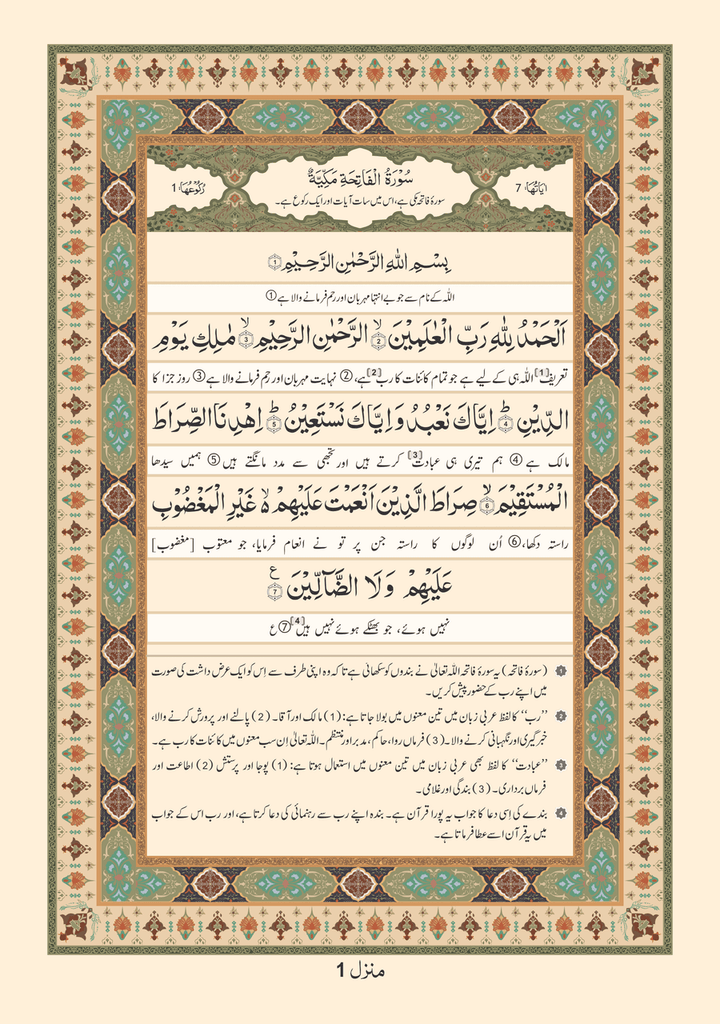 سُوْرَةُ الْفَاتِحَةِ مَكِّيَّةٌ
اٰيَاتُهَا: 7
سورۂ فاتحہ مکی ہے، اس میں سات آیات اور ایک رکوع ہے۔
رُكُوْعُهَا: 1
بِسْمِ اللّٰهِ الرَّحْمٰنِ الرَّحِيْمِ ۝۱
اللہ کے نام سے جو بے انتہا مہربان اور رحم فرمانے والا ہے ①
اَلْحَمْدُ لِلّٰهِ رَبِّ الْعٰلَمِيْنَ ۙ۝۲ الرَّحْمٰنِ الرَّحِيْمِ ۙ۝۳ مٰلِكِ يَوْمِ
تعریف[1] اللہ ہی کے لیے ہے جو تمام کائنات کا رب[2] ہے، ② نہایت مہربان اور رحم فرمانے والا ہے ③ روز جزا کا
الدِّيْنِ ؕ۝۴ اِيَّاكَ نَعْبُدُ وَ اِيَّاكَ نَسْتَعِيْنُ ؕ۝۵ اِهْدِنَا الصِّرَاطَ
مالک ہے ④ ہم تیری ہی عبادت[3] کرتے ہیں اور تجھی سے مدد مانگتے ہیں ⑤ ہمیں سیدھا
الْمُسْتَقِيْمَ ۙ۝۶ صِرَاطَ الَّذِيْنَ اَنْعَمْتَ عَلَيْهِمْ ۙ۬ غَيْرِ الْمَغْضُوْبِ
راستہ دکھا، ⑥ اُن لوگوں کا راستہ جن پر تو نے انعام فرمایا، جو معتوب [مغضوب]
عَلَيْهِمْ وَلَا الضَّآلِّيْنَ ۝۷ ع
نہیں ہوئے، جو بھٹکے ہوئے نہیں ہیں[4] ⑦ ع
1 (سورۂ فاتحہ) یہ سورۂ فاتحہ اللہ تعالیٰ نے بندوں کو سکھائی ہے تاکہ وہ اپنی طرف سے اِس کو ایک عرض داشت کی صورت
میں اپنے رب کے حضور پیش کریں۔
2 ’’رب‘‘ کا لفظ عربی زبان میں تین معنوں میں بولا جاتا ہے: (1) مالک اور آقا۔ (2) پالنے اور پرورش کرنے والا،
خبر گیری اور نگہبانی کرنے والا۔ (3) فرماں روا، حاکم، مدبر اور منتظم۔ اللہ تعالیٰ اِن سب معنوں میں کائنات کا رب ہے۔
3 ’’عبادت‘‘ کا لفظ بھی عربی زبان میں تین معنوں میں استعمال ہوتا ہے: (1) پوجا اور پرستش (2) اطاعت اور
فرماں برداری۔ (3) بندگی اور غلامی۔
4 بندے کی اِسی دعا کا جواب یہ پورا قرآن ہے۔ بندہ اپنے رب سے رہنمائی کی دعا کرتا ہے، اور رب اس کے جواب
میں یہ قرآن اسے عطا فرماتا ہے۔
منزل 1